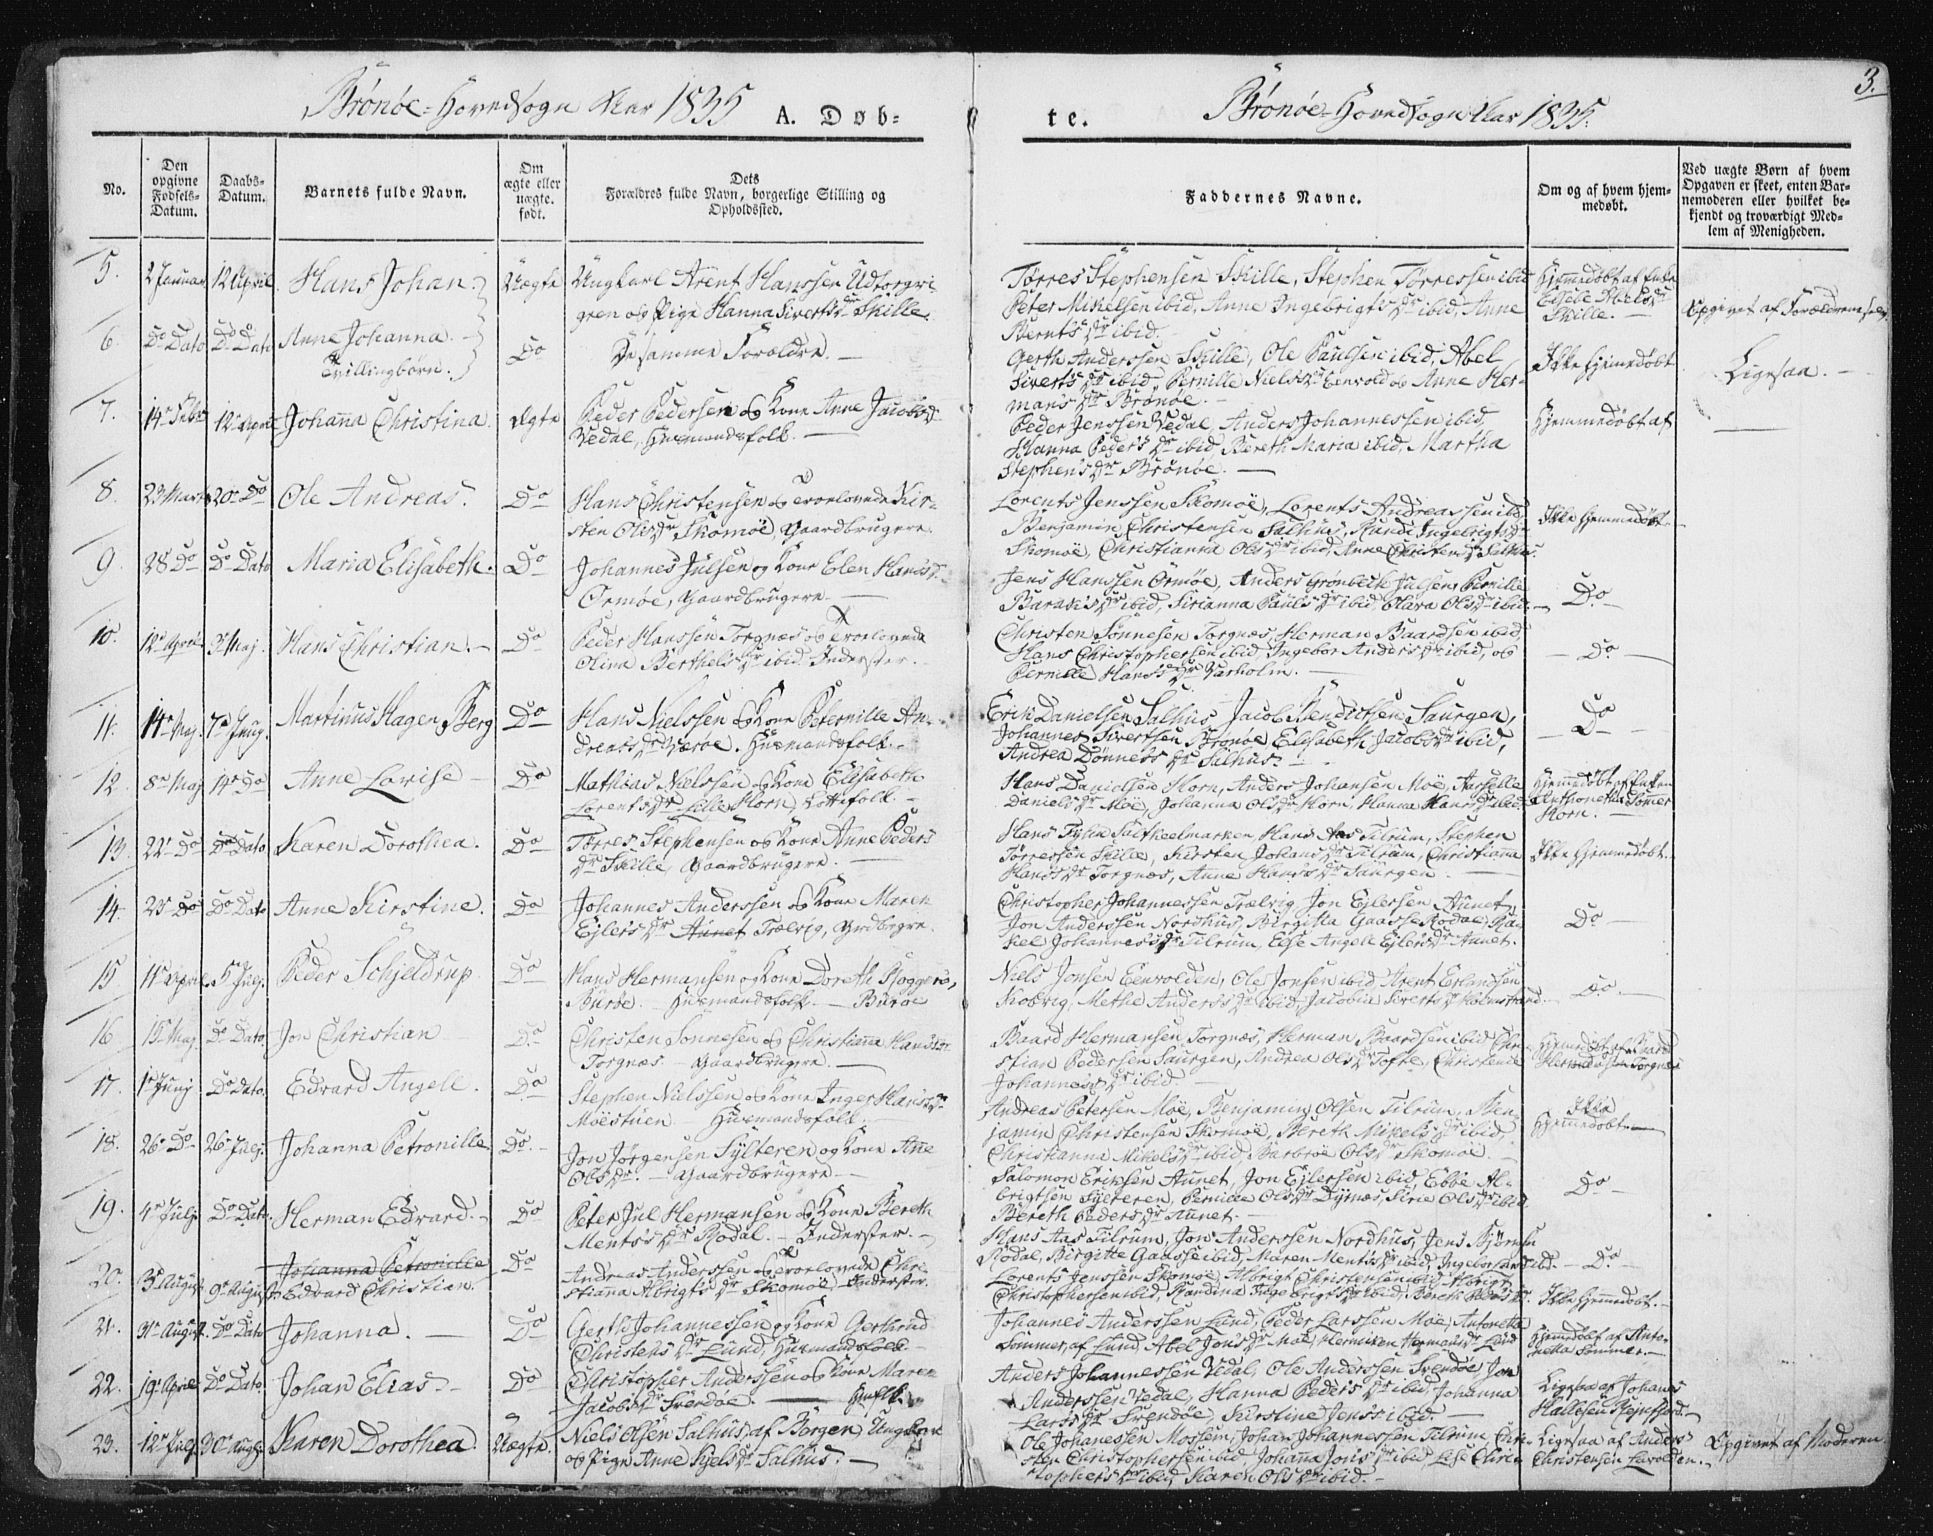 Brönöe-Hovedsogn Aar 1835
A. Døb-
te.
Brönöe-Hovedsogn Aar 1835.
3.
No.
Den opgivne Fødsels-Datum.
Daabs-Datum.
Barnets fulde Navn.
Om ægte eller uægte født.
Dets Forældres fulde Navn, borgerlige Stilling og Opholdssted.
Faddernes Navne.
Om og af hvem hjemmedøbt.
Ved uægte Børn af hvem Opgaven er skeet, enten Barnemoderen eller hvilket bekjendt og troværdigt Medlem af Menigheden.
5. 2 Januar 12 April Hans Johan. Uægte Ungkarl Arent Hanssen Udtorgri-
gren og Pige Hanna Siverts Dr Skille.
Törres Stephensen Skille, Stephen Törressen ibid
Peter Mikelsen ibid, Anne Ingebrigts Dr ibid, Anne
Bernts Dr ibid.
Hjemmedöbt af Enke
Skille.
Opgivet af Forældrene selv.
6. Do Dato Do Dato Anne Johanna.
Tvillingbörn. Do De samme Forældre.
Gerth Anderssen Skille, Ole Paulsen ibid, Abel
Siverts Dr ibid, Pernille Niels Dr Eenvold og Anne Her-
mans Dr Brönöe.
Ikke hjemmedöbt
Ligesaa.
7. 14 Febr 12 April Johanna Christina. Ægte Peder Pedersen og Kone Anne Jacobs Dr
Vedal, Husmandsfolk.
Peder Jenssen Vedal, Anders Johannessen ibid,
Hanna Peders Dr ibid, Bereth Maria ibid, Martha
Stephens Dr Brönöe.
Hjemmedöbt af
8. 23 Marts 20 Do Ole Andreas. Do Hans Christensen og Trolovede Kir-
sten Ols Dr Skomöe, Gaardbrugere.
Lorents Jenssen Skomöe, Lorents Andreassen ibid
Benjamin Christensen Salhus, Randi Ingebrigts Dr
Skomöe, Christianna Ols Dr ibid, Anne Christens Dr Salhus.
Ikke hjemmedöbt.
9. 28 Do Do Dato Maria Elisabeth. Do Johannes Julsen og Kone Elen Hans Dr
Ormöe, Gaardbrugere.
Jens Hanssen Ormöe, Anders Grönbeck Julsen, Pernille
Dr ibid, Sirianna Pauls Dr ibid, Olava Ols Dr ibid.
Do
10. 12 April 3 Maj. Hans Christian. Do Peder Hanssen Torgnæs og Trolovede
Olina Berthels Dr ibid Inderster.
Christen Sönnesen Torgnæs, Herman Baardsen ibid,
Hans Christophersen ibid, Ingebor Anders Dr ibid, og
Pernille Hans Dr Varholm.
Do
11. 14 Maj. 7 Junj. Martinus Hagen Berg Do Hans Nielssen og Kone Peternille An-
dreas Dr Værøe. Husmandsfolk.
Erik Danielsen Salhus, Jacob Bendictsen Saurgen,
Johannes Sivertsen Brönöe, Elisabeth Jacobs Dr ibid,
Andrea Dönnes Dr Salhus.
Do
12. 8 Maj 14 Do Anne Lovise Do Mathias Nielssen og Kone Elisabeth
Lorents Dr Lille Horn,
Hans Danielsen Horn, Anders Johansen Möe,
Daniels Dr Möe, Johanna Ols Dr Horn, Hanna Hans Dr ibid
Hjemmedöbt af Enken
Anthonetta Sömer
Horn.
13. 22 Do Do Dato Karen Dorothea. Do Törres Stephensen og Kone Anne Peders
Dr Skille, Gaardbrugere.
Hans Hans Aas Tilrum, Stephen
Törressen Skille, Kirsten Johans Dr Tilrum, Christianna
Hans Dr Torgnæs, Anne Hans Dr Saurgen.
Ikke hjemmedöbt.
14. 25 Do Do Dato Anne Kirstine. Do Johannes Anderssen og Kone Maren
Ejlers Dr Aunet Trælvig, Grdbrgre.
Christopher Johannessen Trælvig, Jon Ejlersen Aunet,
Jon Anderssen Nordhus, Birgitta Gaasse Rodal, Ra-
kel Johannes Dr Tilrum, Else Angell Ejlers Dr Aunet.
Do
15 11 April. 5 Julj. Peder Schjeldrup Do Hans Hermansen og Kone Doreth
Buröe. Husmandsfolk. Buröe
Niels Jonsen Eenvolden, Ole Jonsen ibid, Arent Erlandsen
Skotvig, Methe Anders Dr ibid, Jacobia Siverts Dr
Do.
16 15 Maj Do Dato. Jon Christian Do Christen Sönnesen og Christianna Hans Dr
Torgnæs. Gaardbrugere.
Baard Hermansen Torgnæs, Herman Baardsen ibid, Chri-
stian Pedersen Saurgen, Andrea Ols Dr Tofte, Christence
Johannes Dr ibid.
Hjemmedöbt af Baard
Hermansen Torgnæs
17. 1 Junj Do Dato. Edvard Angell. Do Stephen Nielssen og Kone Inger Hans Dr
Möestuen Husmandsfolk.
Andreas Petersen Möe, Benjamin Olsen Tilrum, Ben-
jamin Christensen Skomöe, Bereth Mikels Dr ibid,
Christianna Mikels Dr ibid, Barbroe Ols Dr Skomöe.
Ikke
hjemmedöbt.
18. 26 Do 26 Julj. Johanna Petronille Do. Jon Jörgensen Sylteren og Kone Ane
Ols Dr. Gaardbrugere.
Salomon Eriksen Aunet, Jon Ejlersen ibid, Ebbe Al-
brigtsen Sylteren, Pernille Ols Dr Dyjnæs, Sirie Ols Dr ibid,
Bereth Peders Dr Aunet.
Do
19. 4 Julj Do Dato Herman Edvard. Do Peter Jul Hermansen og Kone Bereth
Ments Dr Rodal. Inderster.
Hans Aas Tilrum, Jon Anderssen Nordhus, Jens Björnsen
Rodal, Birgitte Gaasse ibid, Maren Ments Dr ibid, Ingebor
Do
20. 3 August 9 August Johanna Petronille
Edvard Christian. Do Andreas Anderssen og Trolovede Chri-
stianna Albrigts Dr Skomöe, Inderster.
Lorents Jenssen Skomöe, Albrigt Christensen ibid, Albrigt
Christophersen ibid, Randina Ingebrigts Dr ibid, Bereth
Ikke hjemmedöbt.
21. 31 August. Do Dato Johanna. Do Gerth Johannessen og Kone Gertrud
Christens Dr Lund, Husmandsfolk
Johannes Anderssen Lund, Peder Larssen Möe, Antonetta
Sommer af Lund, Abel Jons Dr Möe, Hermans Dr Lund
Hjemmedöbt af Anto-
netta Sommer.
22. 19 April Do Dato. Johan Elias. Do Christopher Anderssen og Kone Maren
Jacobs Dr Svendöe. Husflk.
Anders Johannessen Vedal, Ole Anderssen Svendöe, Jon
Anderssen Vedal, Hanna Peders Dr ibid, Johanna
Lars Dr Svendöe, Kirstine Jens's ibid.
Ligesaa af Johanes
Hallesen
23. 12 Julj 30 Augst. Karen Dorothea. Uægte. Niels Olsen Salhus, af Börgen, Ungkarl
og Pige Anne Kjels Dr Salhus.
Ole Johanessen Mossem, Johan Johannessen Tilrum, Chri-
sten Christophersen ibid, Johanna Jons Dr ibid, Lise Chri-
stophers Dr ibid, Karen Ols Dr ibid.
Ligesaa af Anders
Christensen Eevolden.
Opgivet af Moderen.